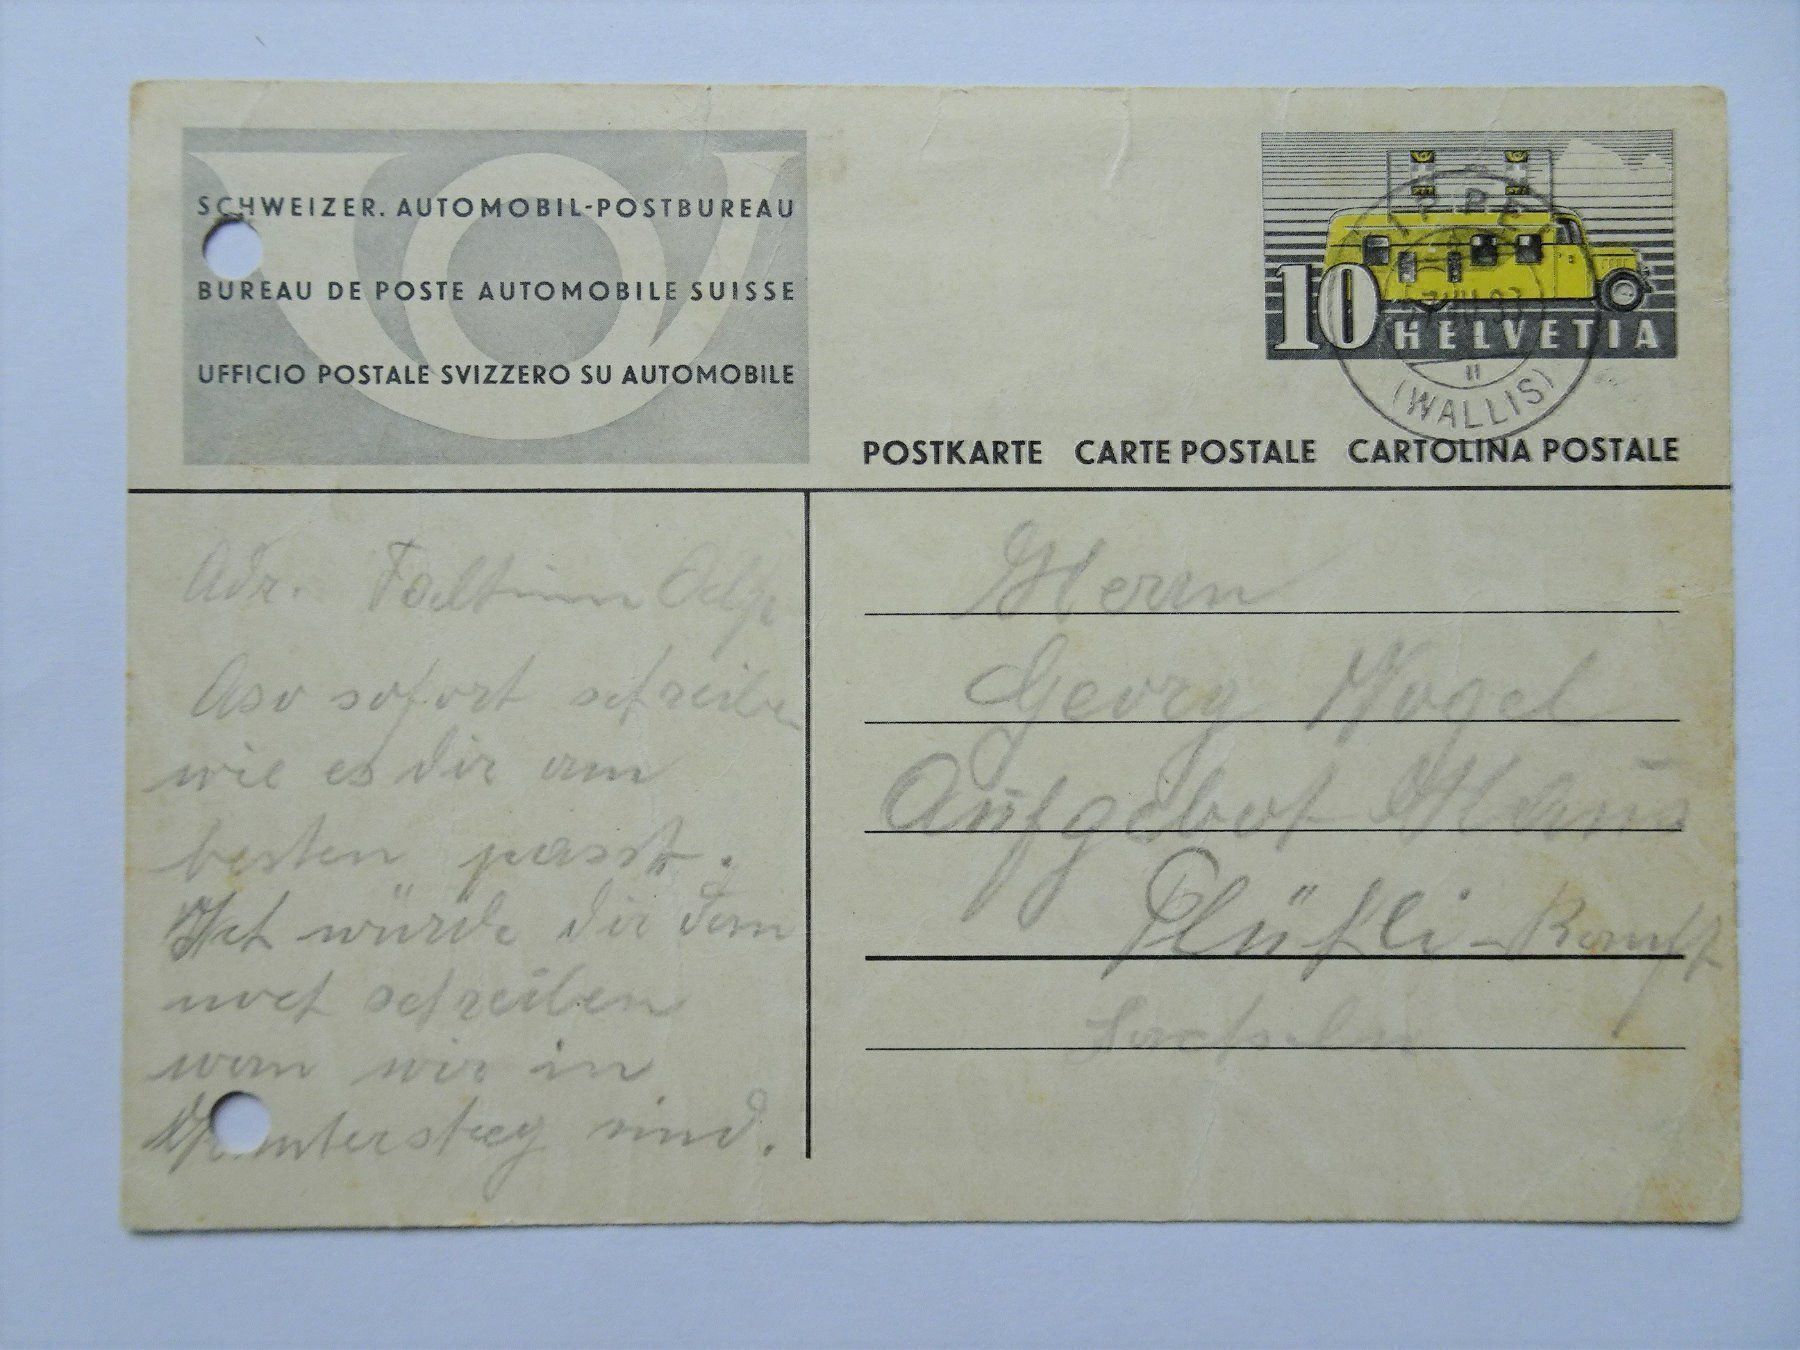 SCHWEIZER. AUTOMOBIL-POSTBUREAU
BUREAU DE POSTE AUTOMOBILE SUISSE
UFFICIO POSTALE SVIZZERO SU AUTOMOBILE
10 HELVETIA
(WALLIS)
POSTKARTE CARTE POSTALE CARTOLINA POSTALE
Adr. Alp
Aso sofort schreiben
wie es dir am
besten passt.
würde dir dann
noch schreiben
wan wir in
sind.
Herrn
Georg Vogel
Aufgebot Haus
Flühli-Ranft
Sachseln